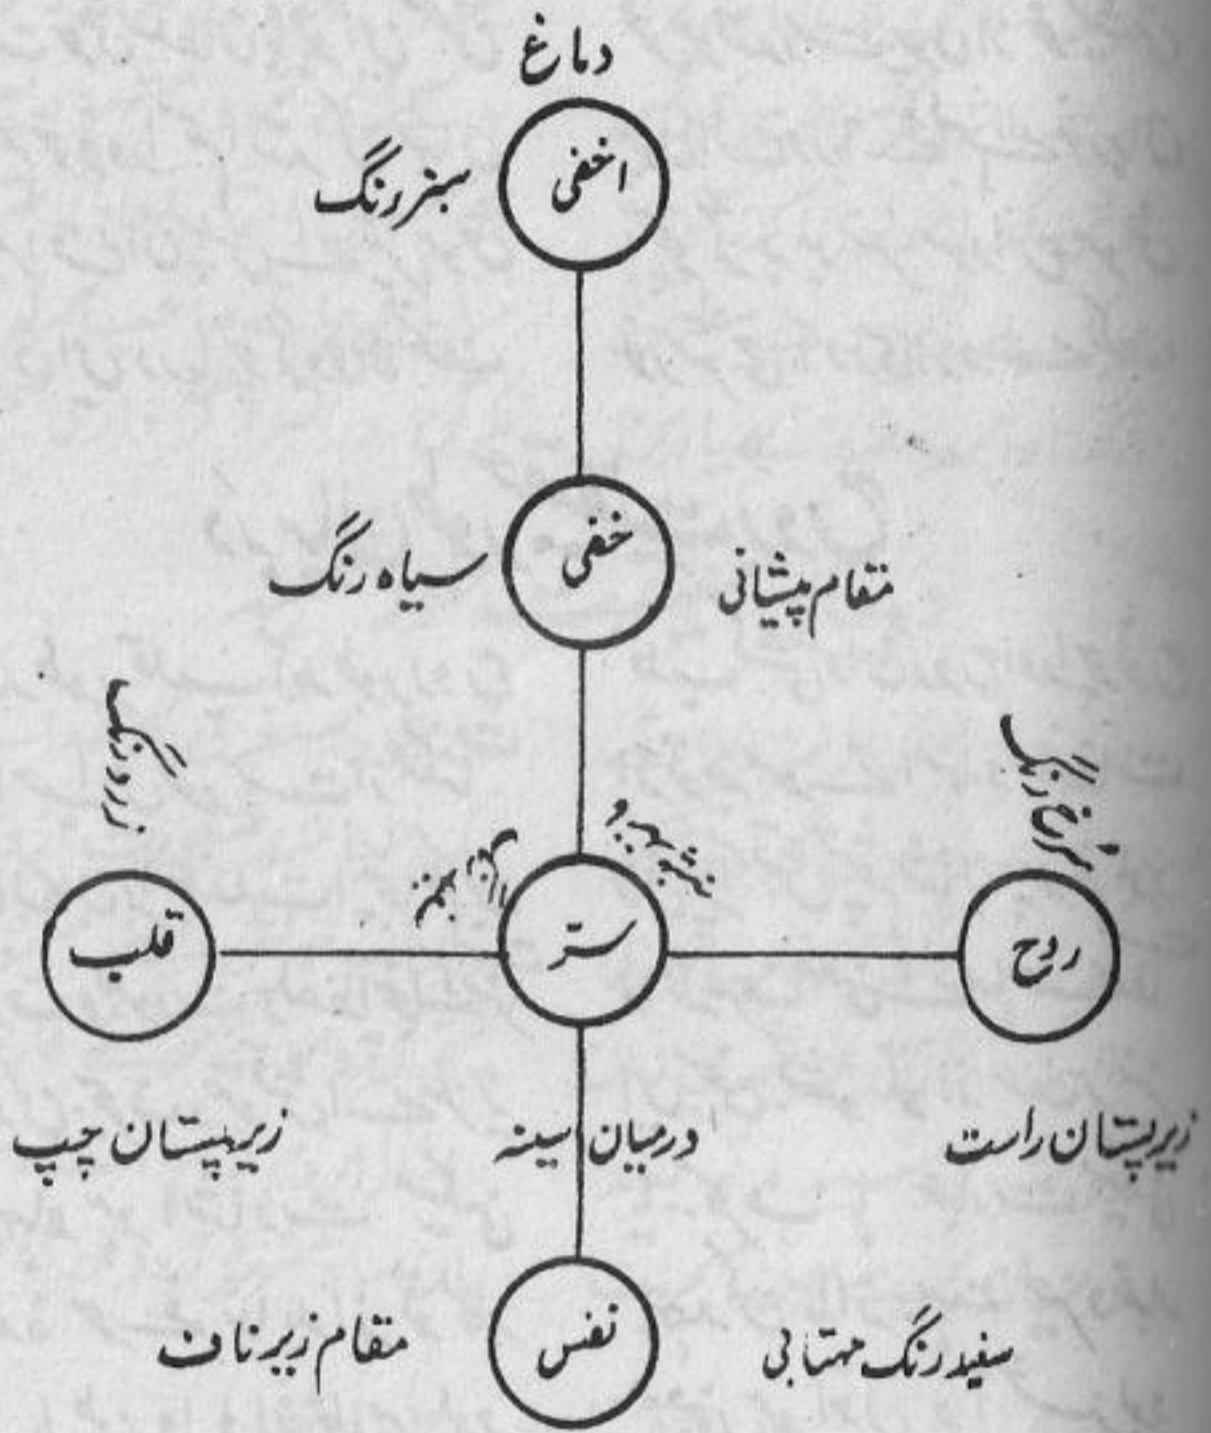 دماغ
اخفی
سبز رنگ
خفی
مقام پیشانی
سیاه رنگ
سرخ رنگ
زرد رنگ
روح
سرّ
قلب
زیر پستان راست
درمیان سینہ
زیر پستان چپ
نفس
سفید رنگ مہتابی
مقام زیر ناف